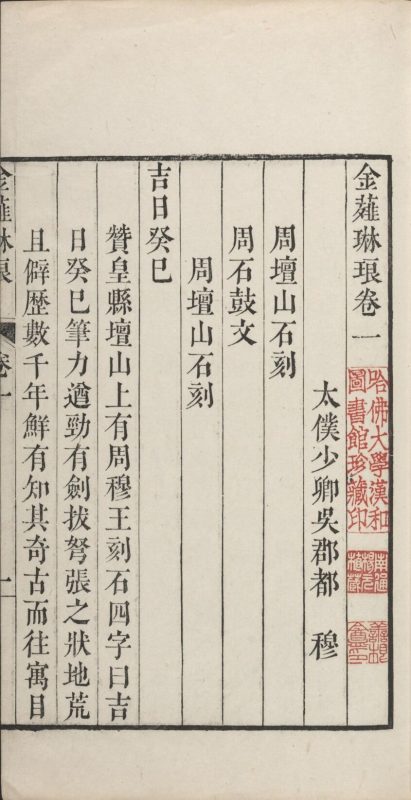 金薤琳琅卷一
太僕少卿吳郡都　穆
周壇山石刻
周石鼓文
周壇山石刻
吉日癸巳
贊皇縣壇山上有周穆王刻石四字曰吉
日癸巳筆力遒勁有劍拔弩張之狀地荒
且僻歷數千年鮮有知其奇古而往寓目
金薤琳琅　卷一　一
哈佛大學漢和
圖書館珍藏印